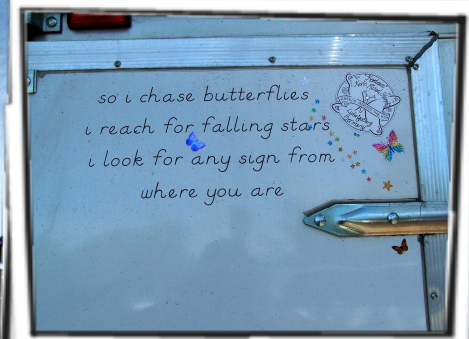 so i chase butterflies
i reach for falling stars
i look for any sign from
where you are